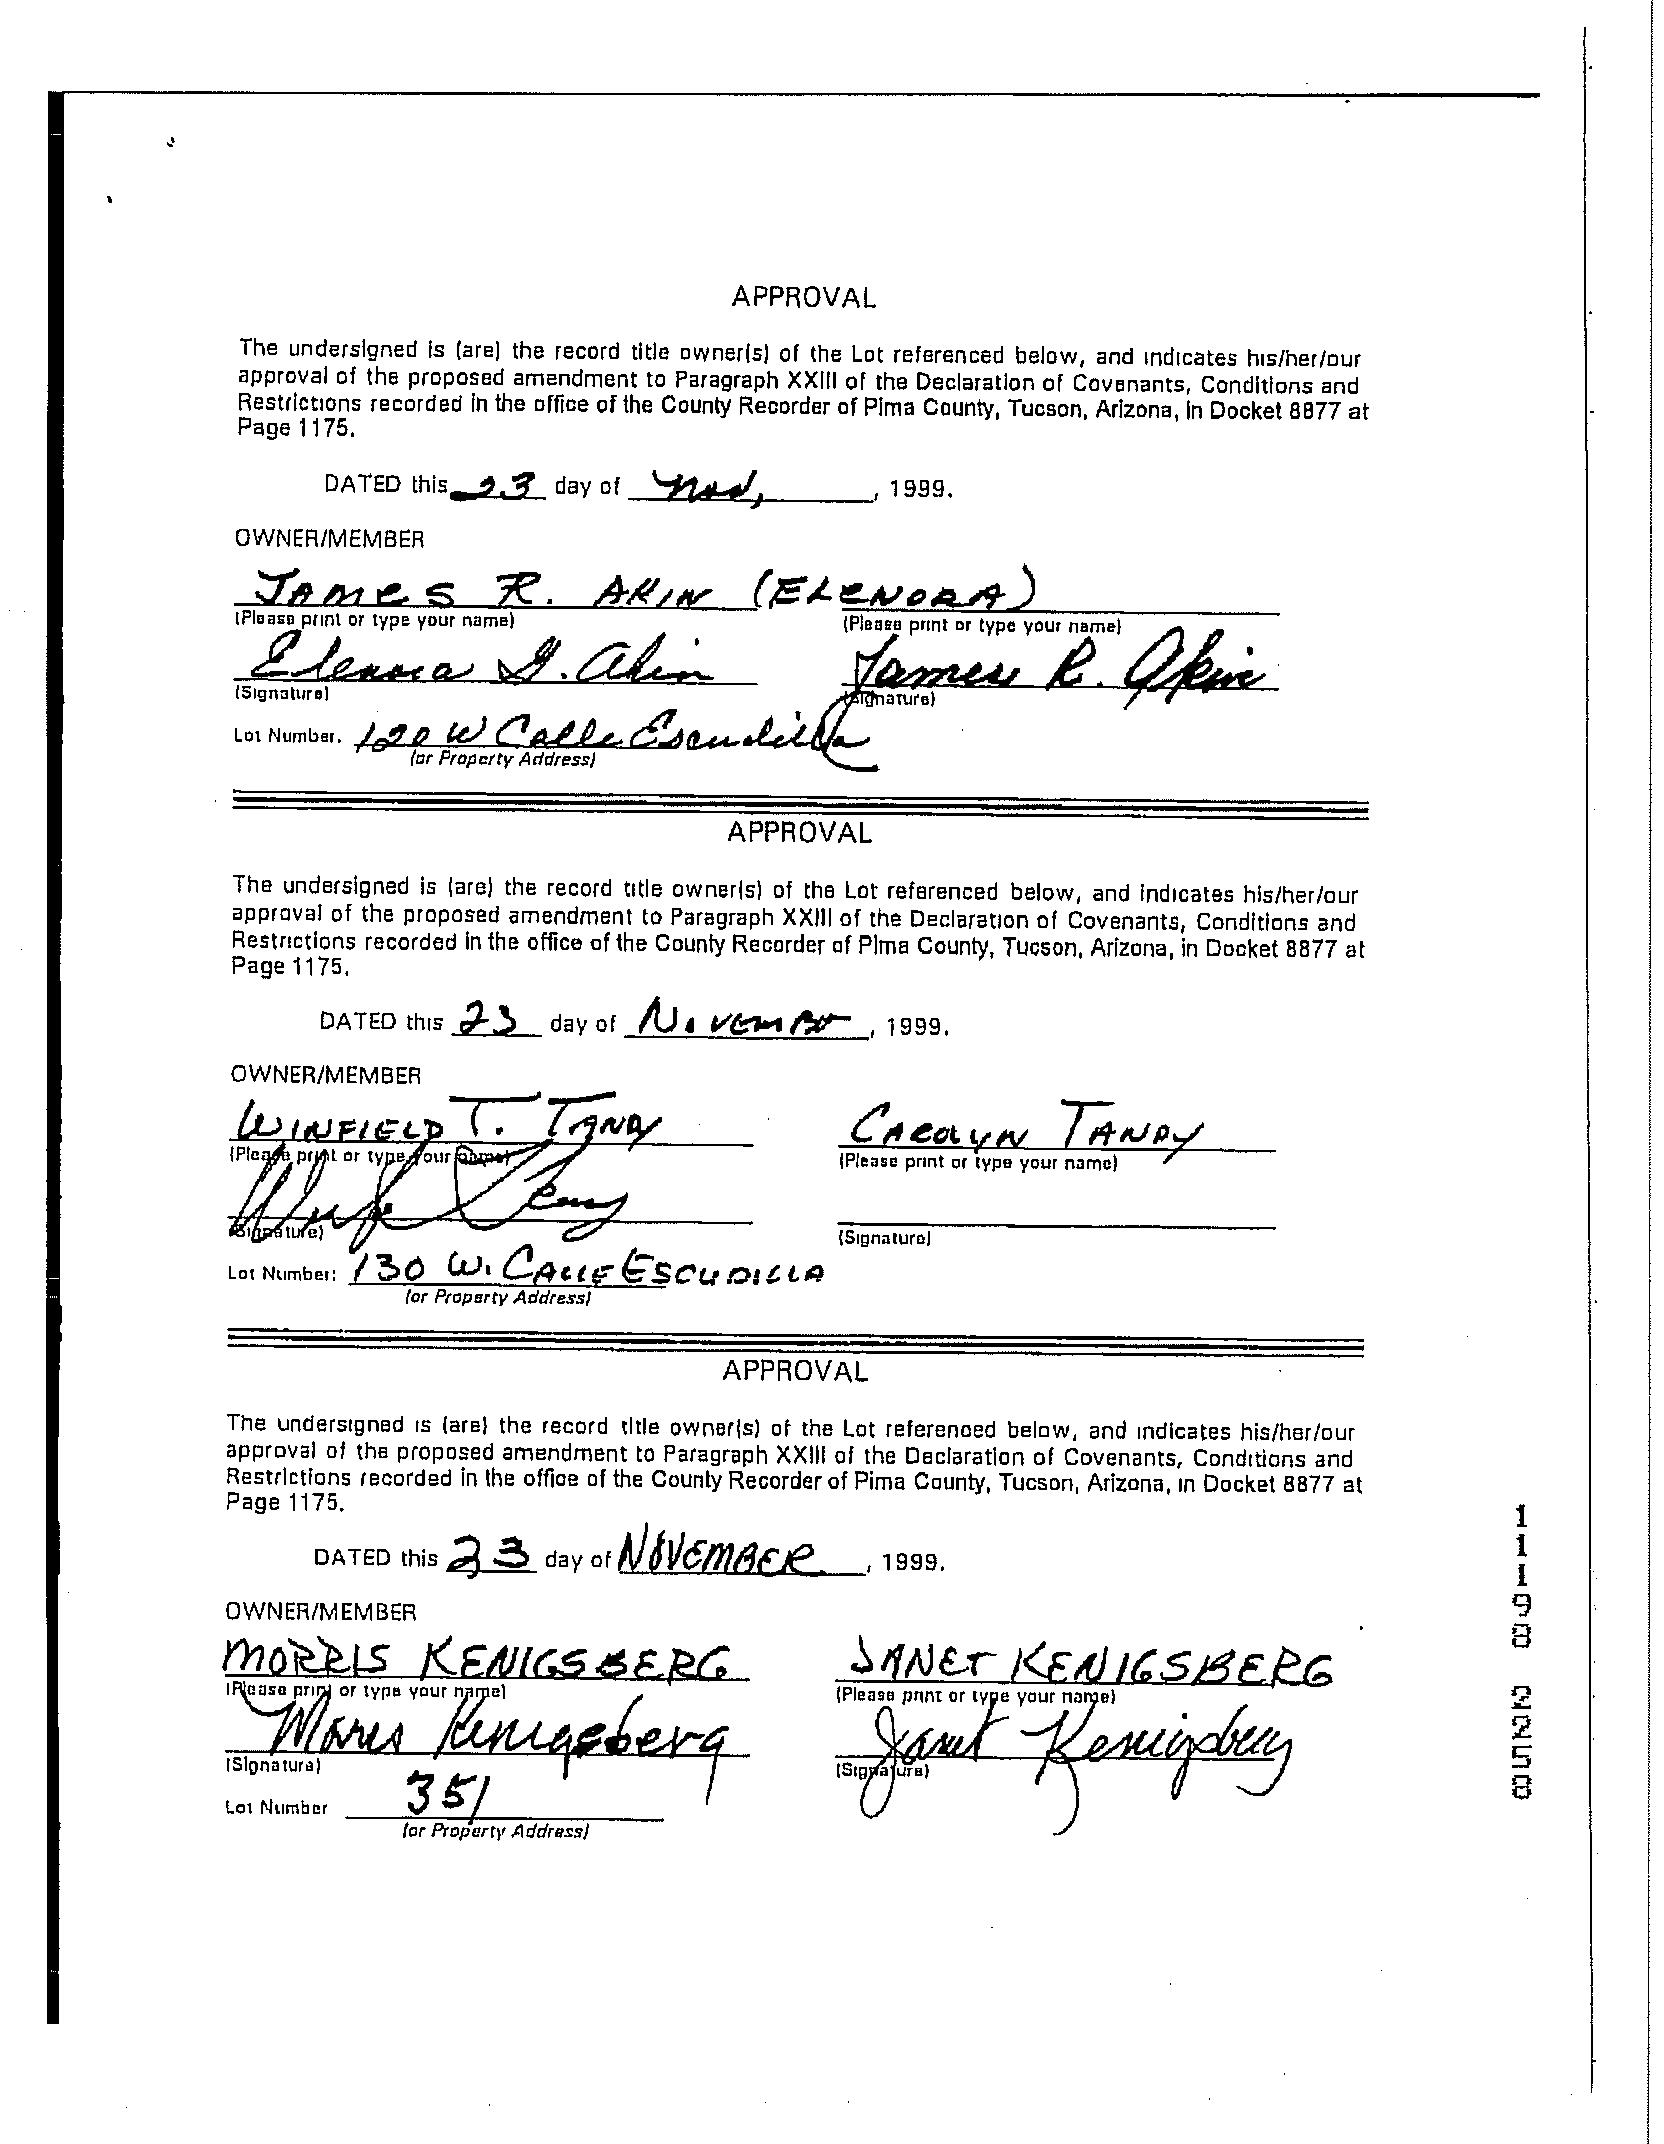 APPROVAL
The undersigned is (are) the record title owner(s) of the Lot referenced below, and indicates his/her/our
approval of the proposed amendment to Paragraph XXIII of the Declaration of Covenants, Conditions and
Restrictions recorded in the office of the County Recorder of Pima County, Tucson, Arizona, in Docket 8877 at
Page 1175.
DATED this 23 day of Nov, , 1999.
OWNER/MEMBER
JAMES R. AKIN (ELENORA)
(Please print or type your name) (Please print or type your name)
Elenora G. Akin James R. Akin
(Signature) (Signature)
Lot Number. 120 W Calle Escudilla
(or Property Address)
APPROVAL
The undersigned is (are) the record title owner(s) of the Lot referenced below, and indicates his/her/our
approval of the proposed amendment to Paragraph XXIII of the Declaration of Covenants, Conditions and
Restrictions recorded in the office of the County Recorder of Pima County, Tucson, Arizona, in Docket 8877 at
Page 1175.
DATED this 23 day of November, 1999.
OWNER/MEMBER
WINFIELD T. TANDY CAROLYN TANDY
(Please print or type your name) (Please print or type your name)
(Signature) (Signature)
Lot Number: 130 W. CALLE ESCUDILLA
(or Property Address)
APPROVAL
The undersigned is (are) the record title owner(s) of the Lot referenced below, and indicates his/her/our
approval of the proposed amendment to Paragraph XXIII of the Declaration of Covenants, Conditions and
Restrictions recorded in the office of the County Recorder of Pima County, Tucson, Arizona, in Docket 8877 at
Page 1175.
DATED this 23 day of NOVEMBER, 1999.
OWNER/MEMBER
MORRIS KENIGSBERG JANET KENIGSBERG
(Please print or type your name) (Please print or type your name)
Morris Kenigsberg Janet Kenigsberg
(Signature) (Signature)
Lot Number 351
(or Property Address)
11198 2258